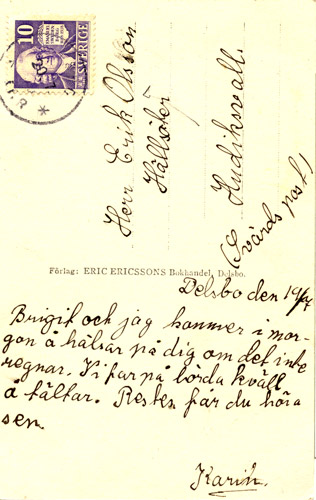 10
SVERIGE
Herr Erik Olsson
Hällsäter
Hudiksvall
(Svärds post)
Förlag: ERIC ERICSSONS Bokhandel, Delsbo.
Delsbo den 19/7
Brigit och jag kommer i mor-
gon å hälsar på dig om det inte
regnar. Vi far på lörda kväll
å tältar. Resten får du höra
sen.
Karin.